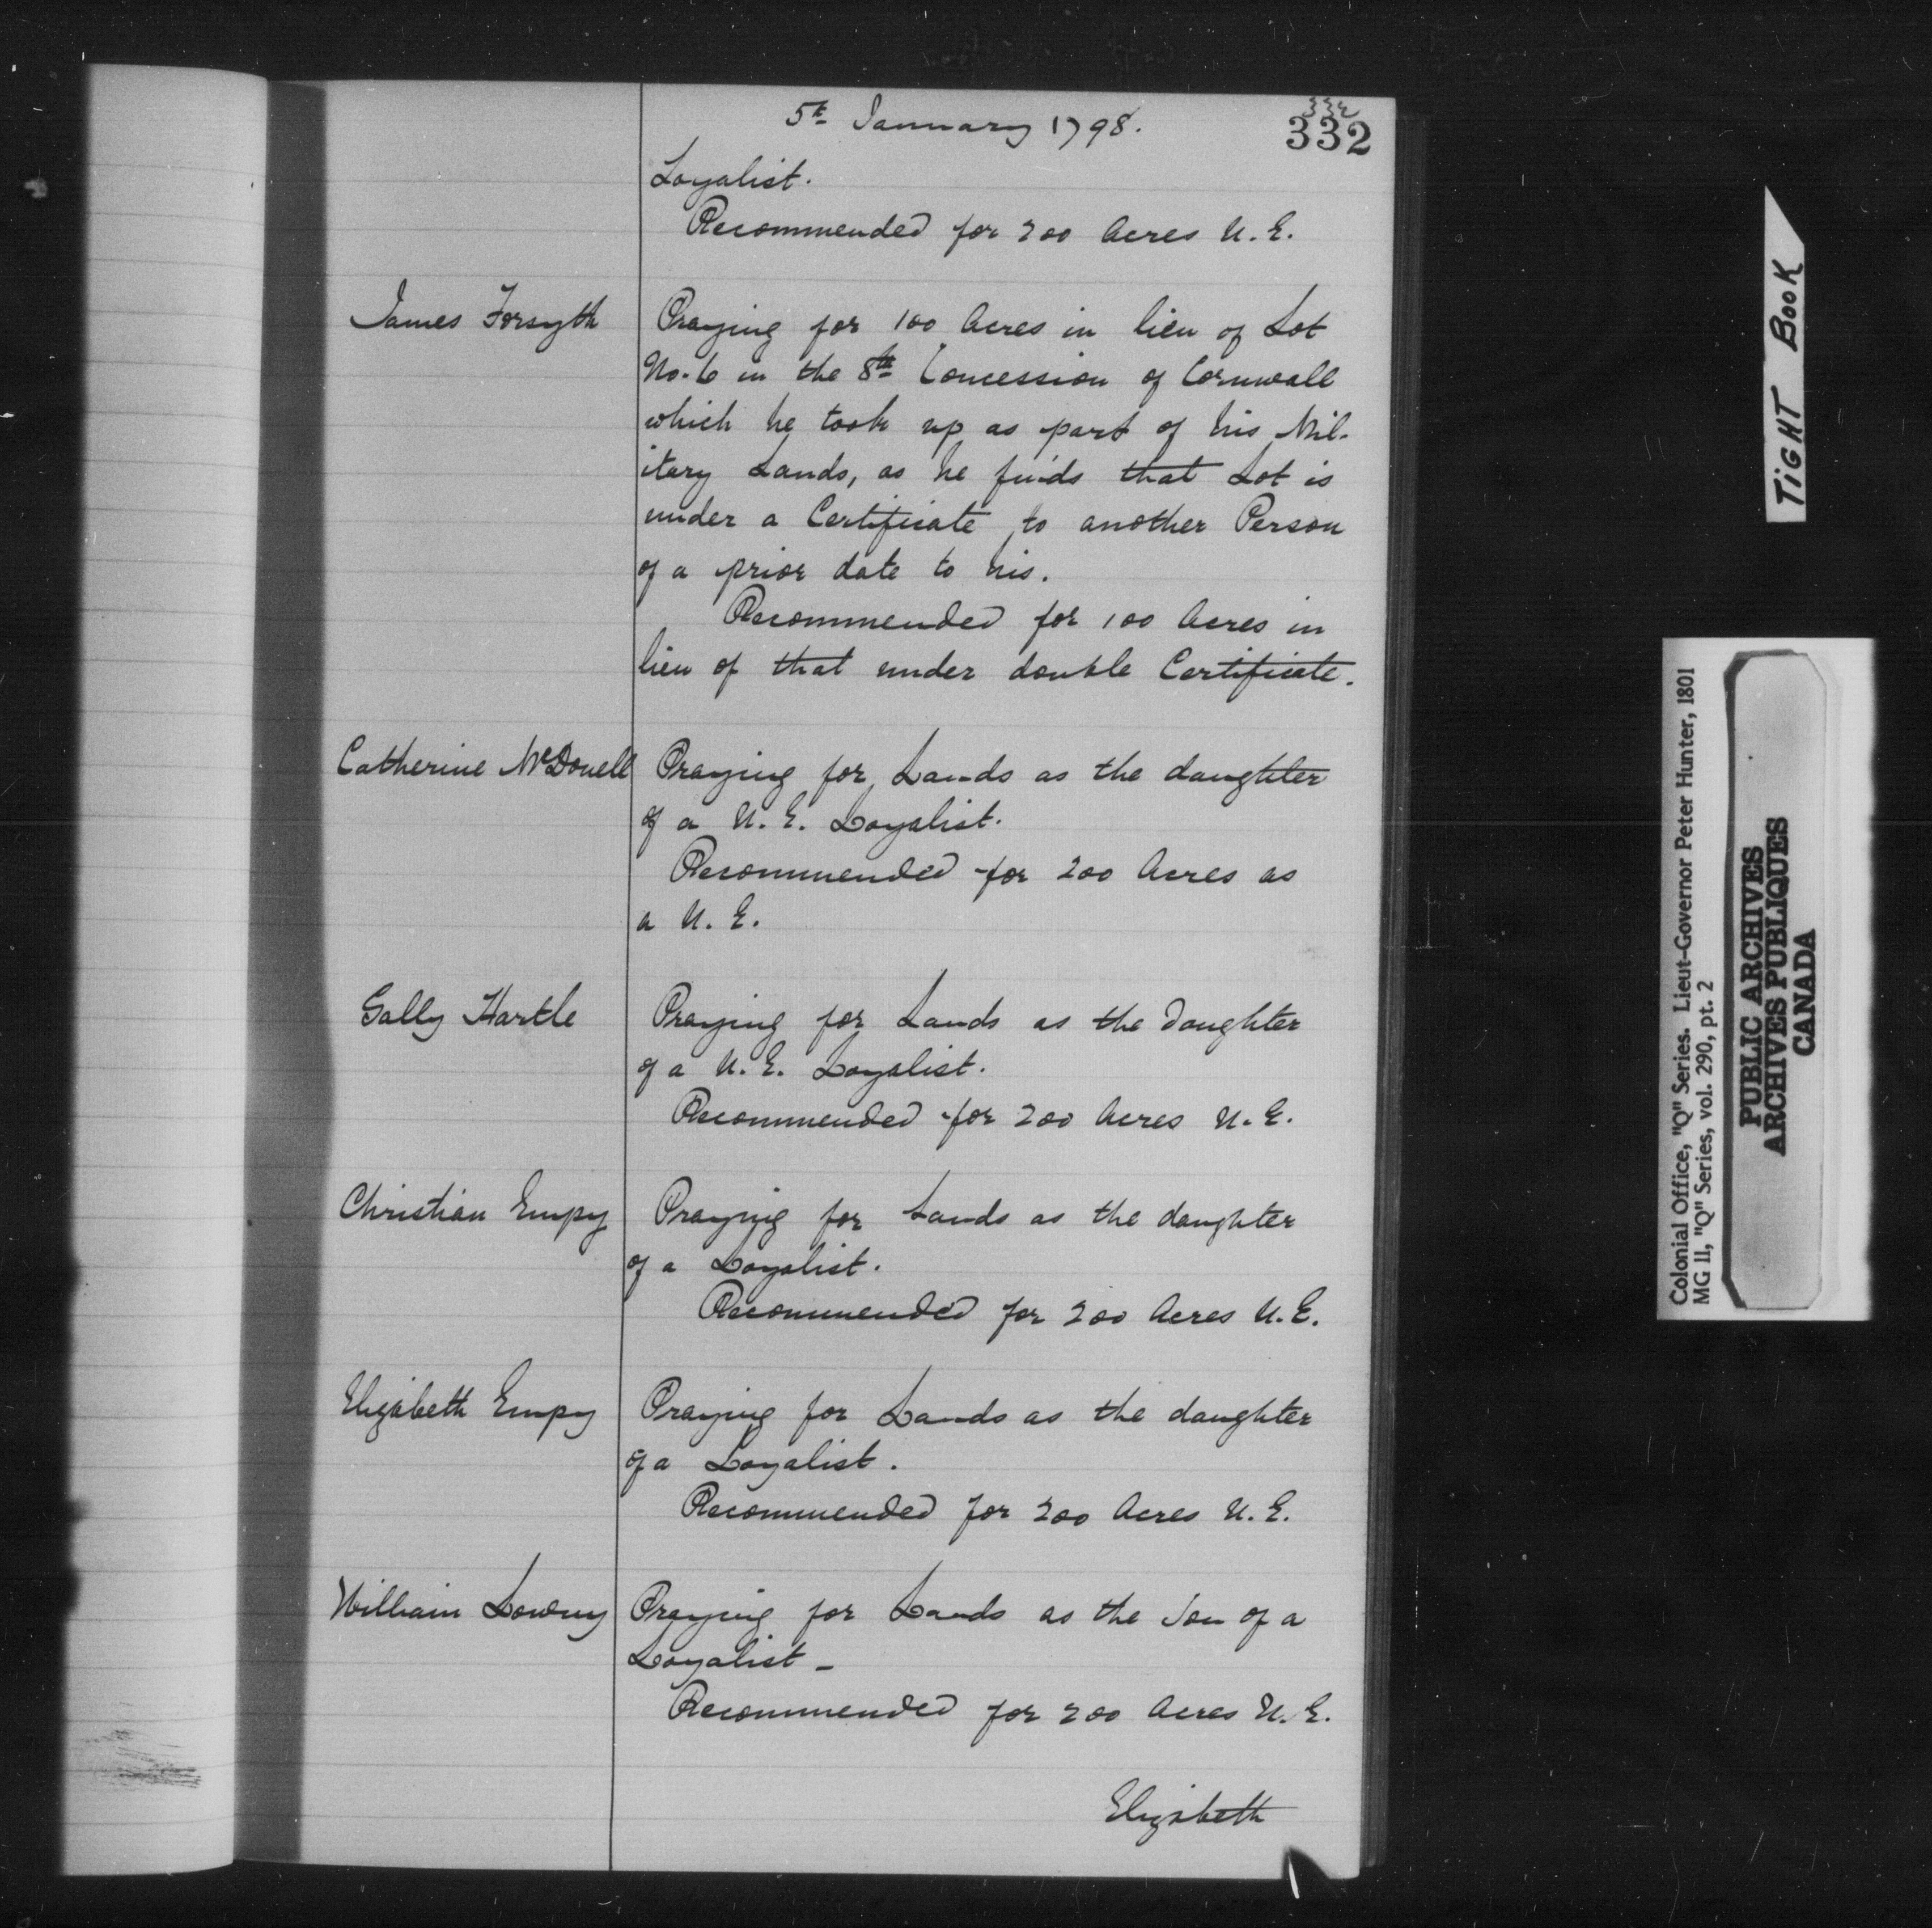 5th January 1798.
332
332
Loyalist.
Recommended for 200 Acres U.E.
James Forsyth
Praying for 100 Acres in lieu of Lot
No. 6 in the 8th Concession of Cornwall
which he took up as part of his Mil-
itary Lands, as he finds that Lot is
under a Certificate to another Person
of a prior date to his.
Recommended for 100 Acres in
lieu of that under double Certificate.
Catherine McDonell
Praying for Lands as the daughter
of a U.E. Loyalist.
Recommended for 200 Acres as
a U.E.
Sally Hartle
Praying for Lands as the Daughter
of a U.E. Loyalist.
Recommended for 200 Acres U.E.
Christian Empy
Praying for Lands as the daughter
of a Loyalist.
Recommended for 200 Acres U.E.
Elizabeth Empy
Praying for Lands as the daughter
of a Loyalist.
Recommended for 200 Acres U.E.
William
Praying for Lands as the Son of a
Loyalist -
Recommended for 200 Acres U.E.
Elizabeth
TIGHT BOOK
Colonial Office, "Q" Series. Lieut-Governor Peter Hunter, 1801
MG 11, "Q" Series, vol. 290, pt. 2
PUBLIC ARCHIVES
ARCHIVES PUBLIQUES
CANADA